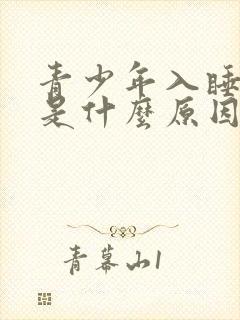 青少年入睡
是什麼原因
青幕山1